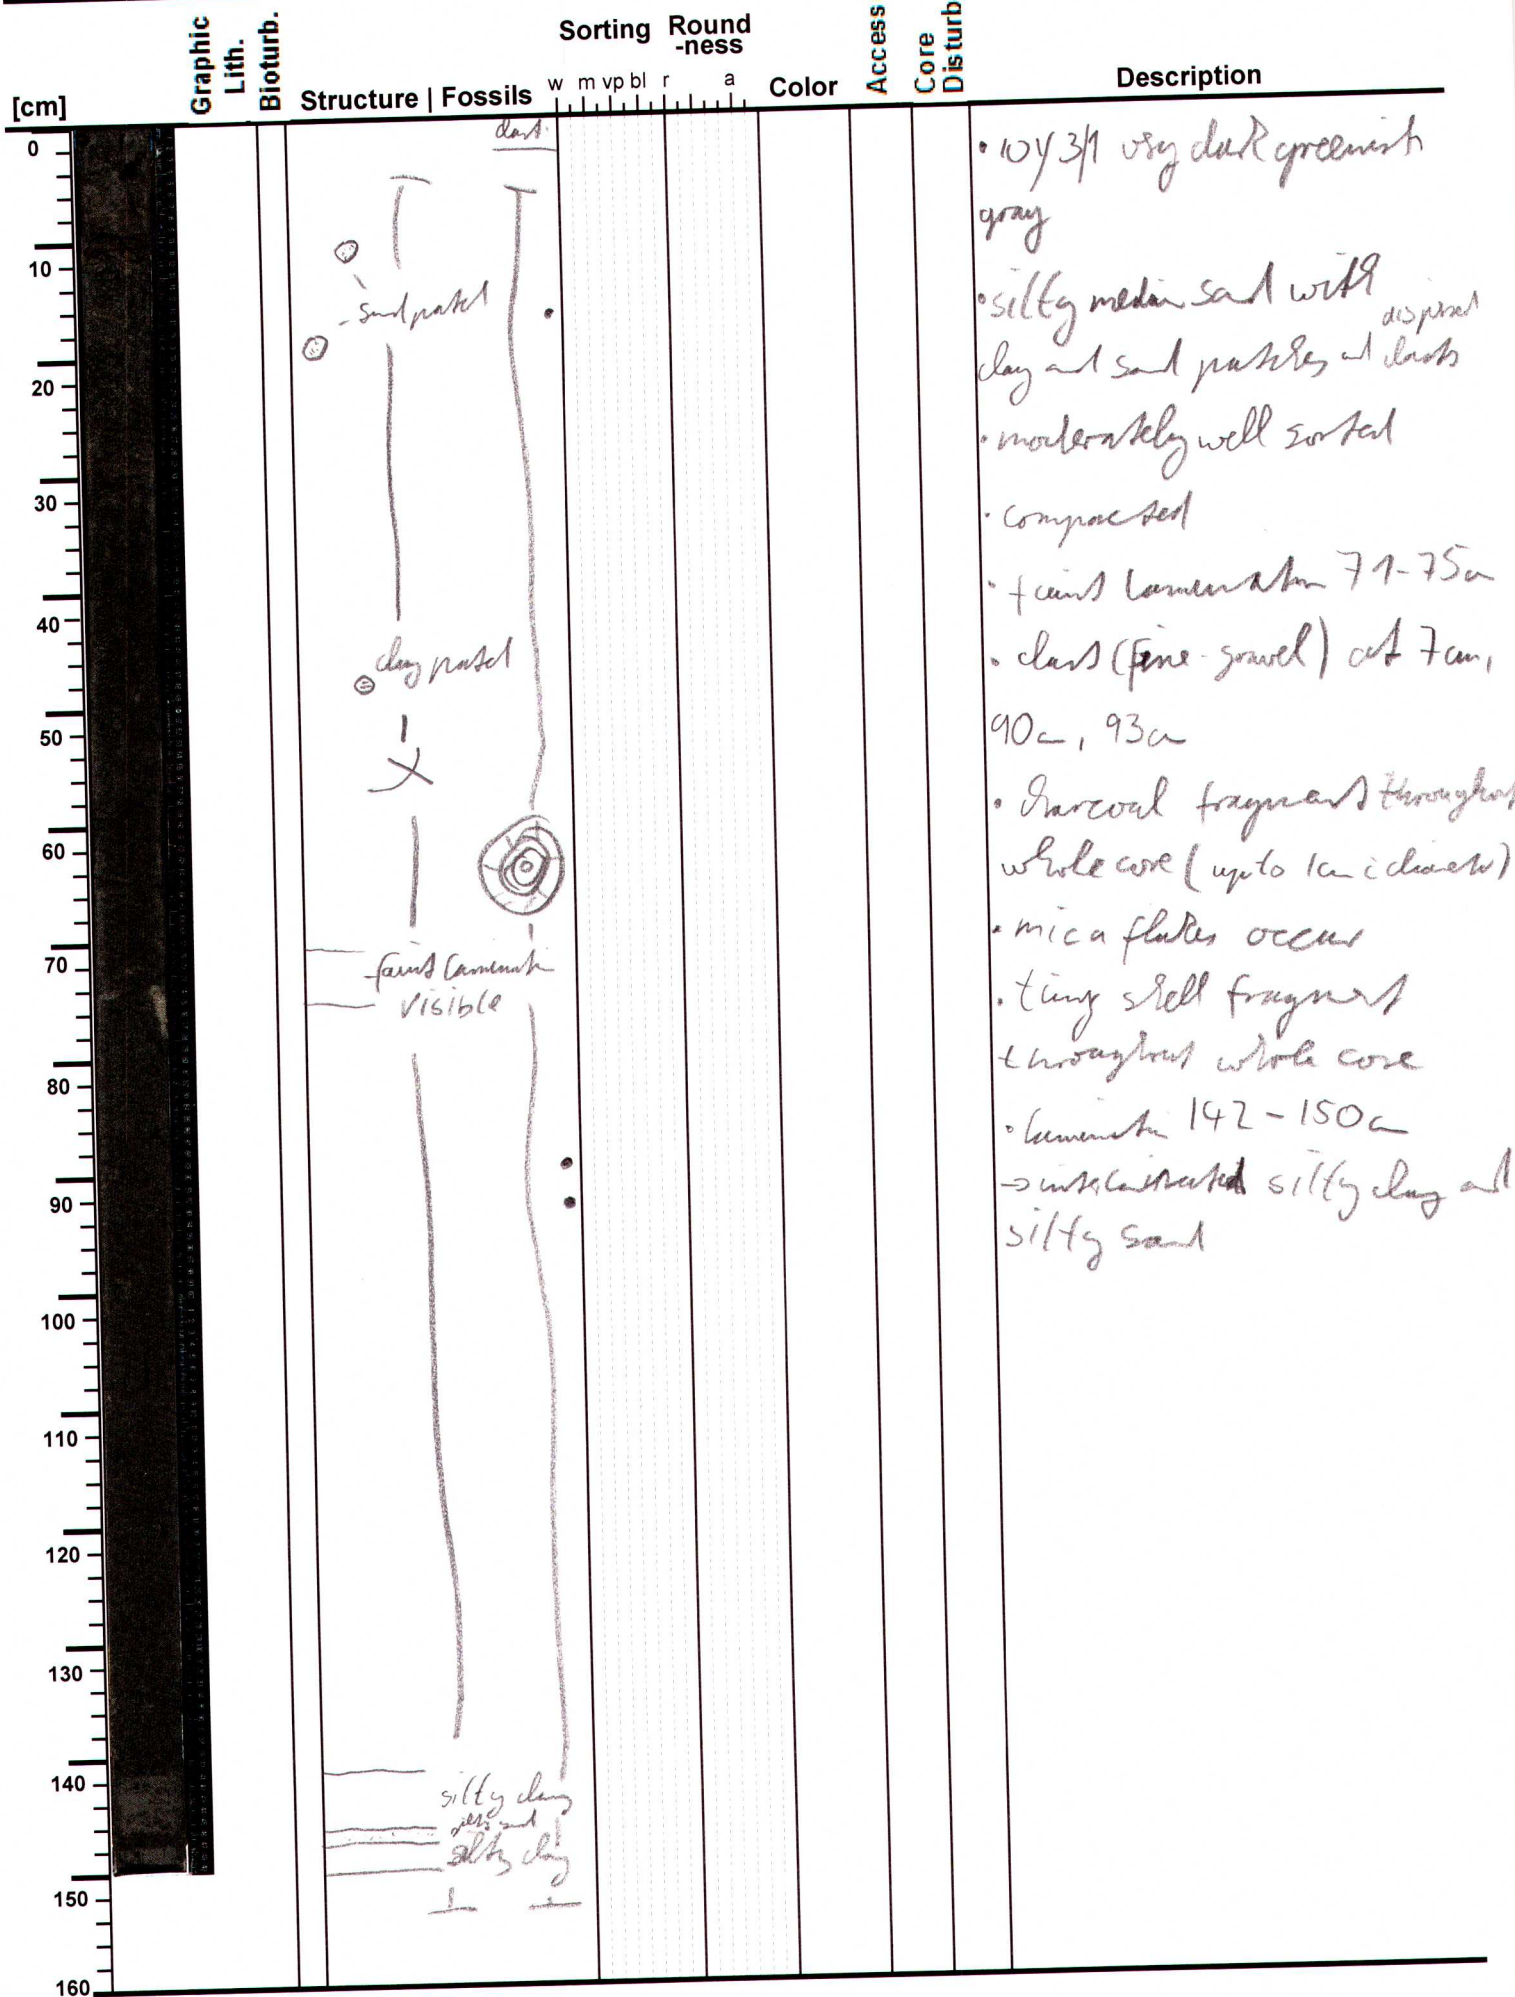 Graphic Lith.
Bioturb.
Structure | Fossils
Sorting
w m vp bl
Round-ness
r a
Color
Access
Core Disturb
Description
[cm]
0
10
20
30
40
50
60
70
80
90
100
110
120
130
140
150
160
clast.
- sand patch
clay patch
faint laminatn
visible
silty clay
silty sand
silty clay
• 10Y 3/1 very dark greenish
gray
• silty medium sand with dispersed
clay and sand patches and clasts
• moderately well sorted
• compacted
• faint lamination 71-75cm
• clast (fine-gravel) at 7cm,
90cm, 93cm
• charcoal fragment throughout
whole core (up to 1cm i diameter)
• mica flakes occur
• tiny shell fragment
throughout whole core
• lamination 142-150cm
→ silty clay and
silty sand